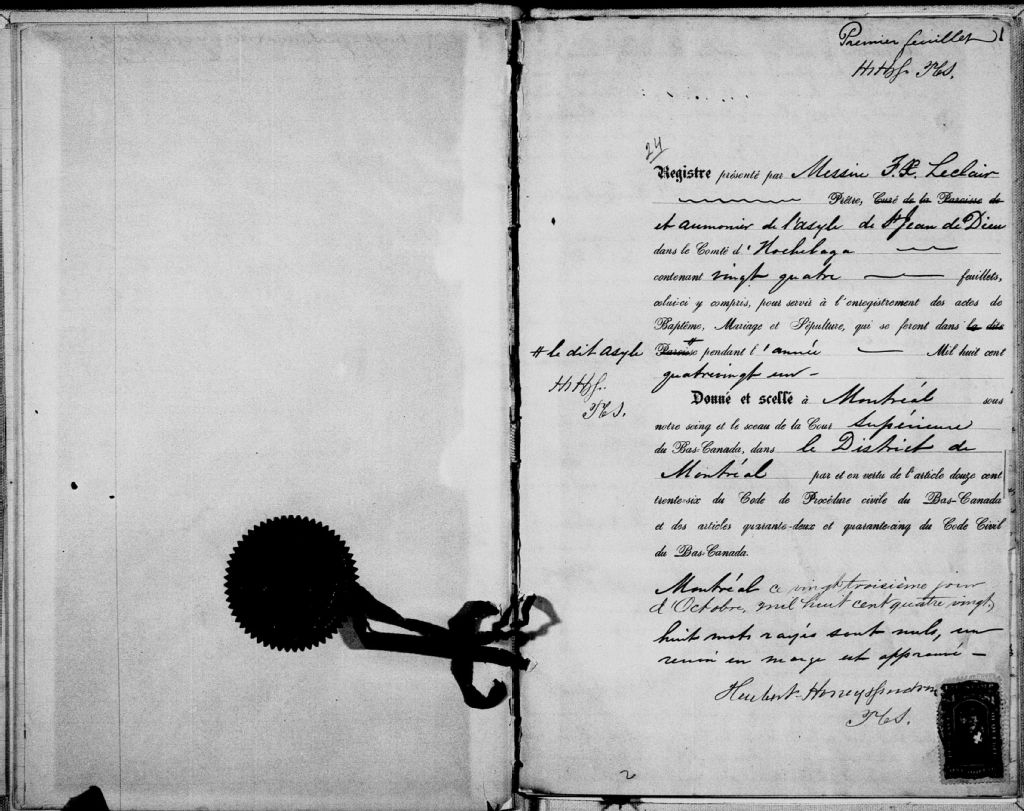 Premier feuillet 1
HHH&G PCS.
24
Registre présenté par Messire F. X. Leclair
Prêtre, Curé de la Paroisse de
et aumonier de l'asyle de St Jean de Dieu
dans le Comté d' Hochelaga
contenant vingt quatre feuillets,
celui-ci y compris, pour servir à l'enregistrement des actes de
Baptême, Mariage et Sépulture, qui se feront dans la dite
# le dit asyle
Paroisse # pendant l'année Mil huit cent
quatrevingt un -
Donné et scellé à Montréal sous
notre seing et le sceau de la Cour Supérieure
du Bas-Canada, dans le District de
Montréal par et en vertu de l'article douze cent
trente-six du Code de Procédure civile du Bas-Canada
et des articles quarante-deux et quarante-cinq du Code Civil
du Bas-Canada.
Montréal ce vingt troisième jour
d'Octobre, mil huit cent quatre vingt,
huit mots rayés sont nuls, un
renvoi en marge est approuvé -
Hubert Honey & Gendron
PCS.